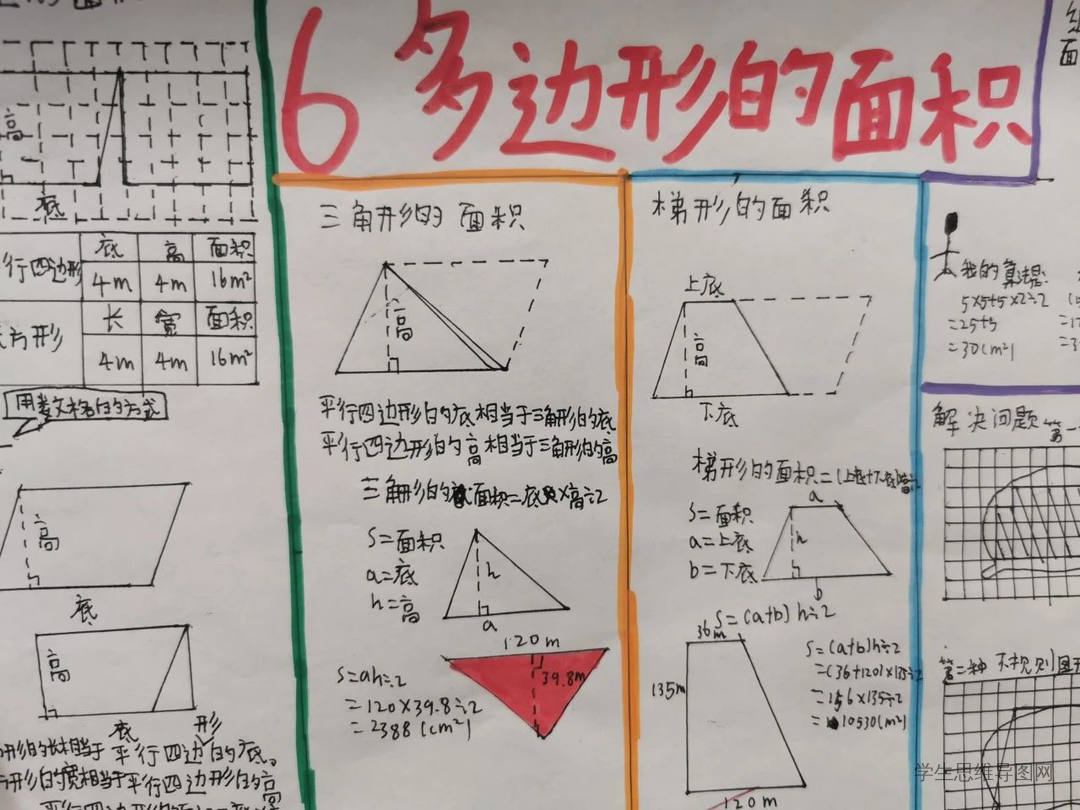 6 多边形的面积
高
底
底 高 面积
行四边形 4m 4m 16m²
长 宽 面积
方形 4m 4m 16m²
高
底
高
底
形
平行四边形的底。
相当于平行四边形的高
三角形的面积
高
平行四边形的底相当于三角形的底
平行四边形的高相当于三角形的高
三角形的面积=底×高÷2
S=面积
a=底
h=高
h
a
120m
39.8m
S=ah÷2
=120×39.8÷2
=2388(cm²)
梯形的面积
上底
高
下底
梯形的面积=(上底+下底)高÷
S=面积
a=上底
b=下底
a
h
b
S=(a+b)h÷2
36m
135m
120m
S=(a+b)h÷2
=(36+120)×135÷2
=156×135÷2
=10530(m²)
我的算法是:
5×5+5×2÷2
=25+5
=30(m²)
解决问题
第二种 不规则图形
学生思维导图网